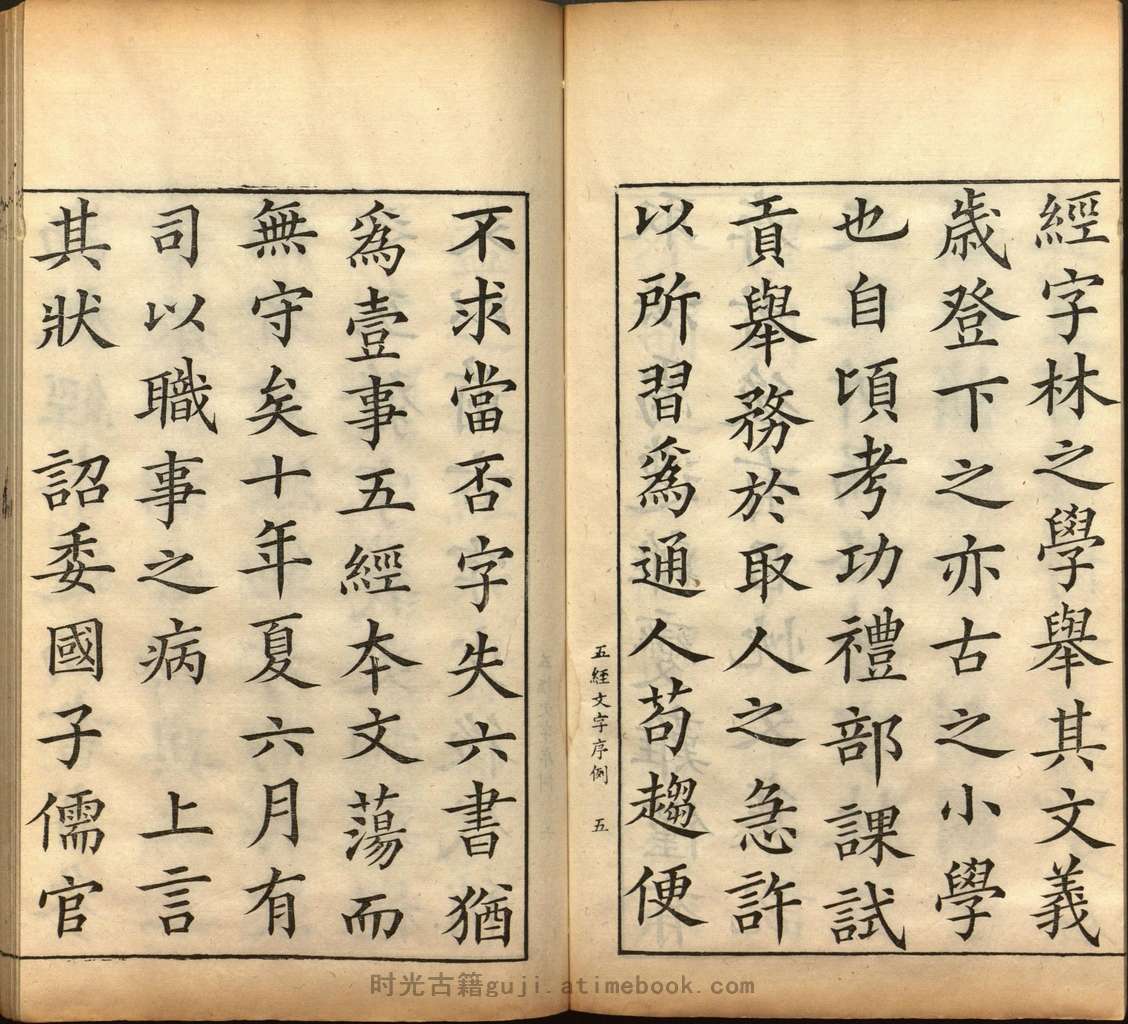 經字林之學舉其文義
歲登下之亦古之小學
也自頃考功禮部課試
貢舉務於取人之急許
以所習爲通人苟趨便
五經文字序例 五
不求當否字失六書猶
爲壹事五經本文蕩而
無守矣十年夏六月有
司以職事之病 上言
其狀 詔委國子儒官
时光古籍guji.atimebook.com